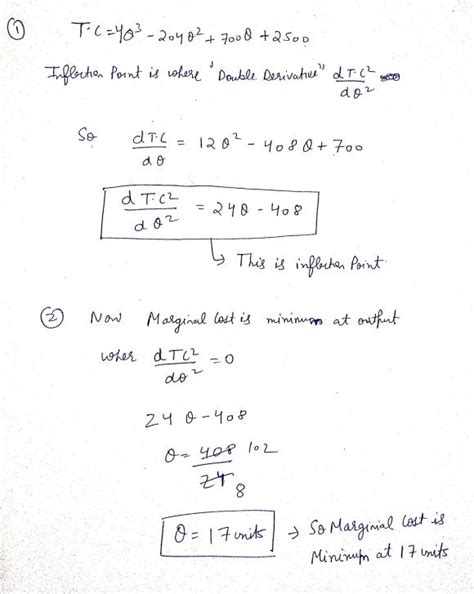 ① T·C = 4Q³ - 204Q² + 700Q + 2500
Inflection Point is where "Double Derivative" dT·C²/dQ²
So dT·C/dQ = 12Q² - 408Q + 700
dT·C²/dQ² = 24Q - 408
↳ This is inflection Point
② Now Marginal Cost is minimum at output
wher dTC²/dQ² = 0
24Q - 408
Q = 408/24 102/8
Q = 17 units → So Marginial Cost is
Minimum at 17 units